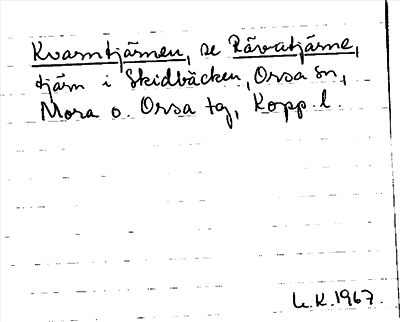 Kvarntjärnen, se Rävatjärne,
tjärn i Skidbäcken, Orsa sn,
Mora o. Orsa tg, Kopp. l.
L.K. 1967.